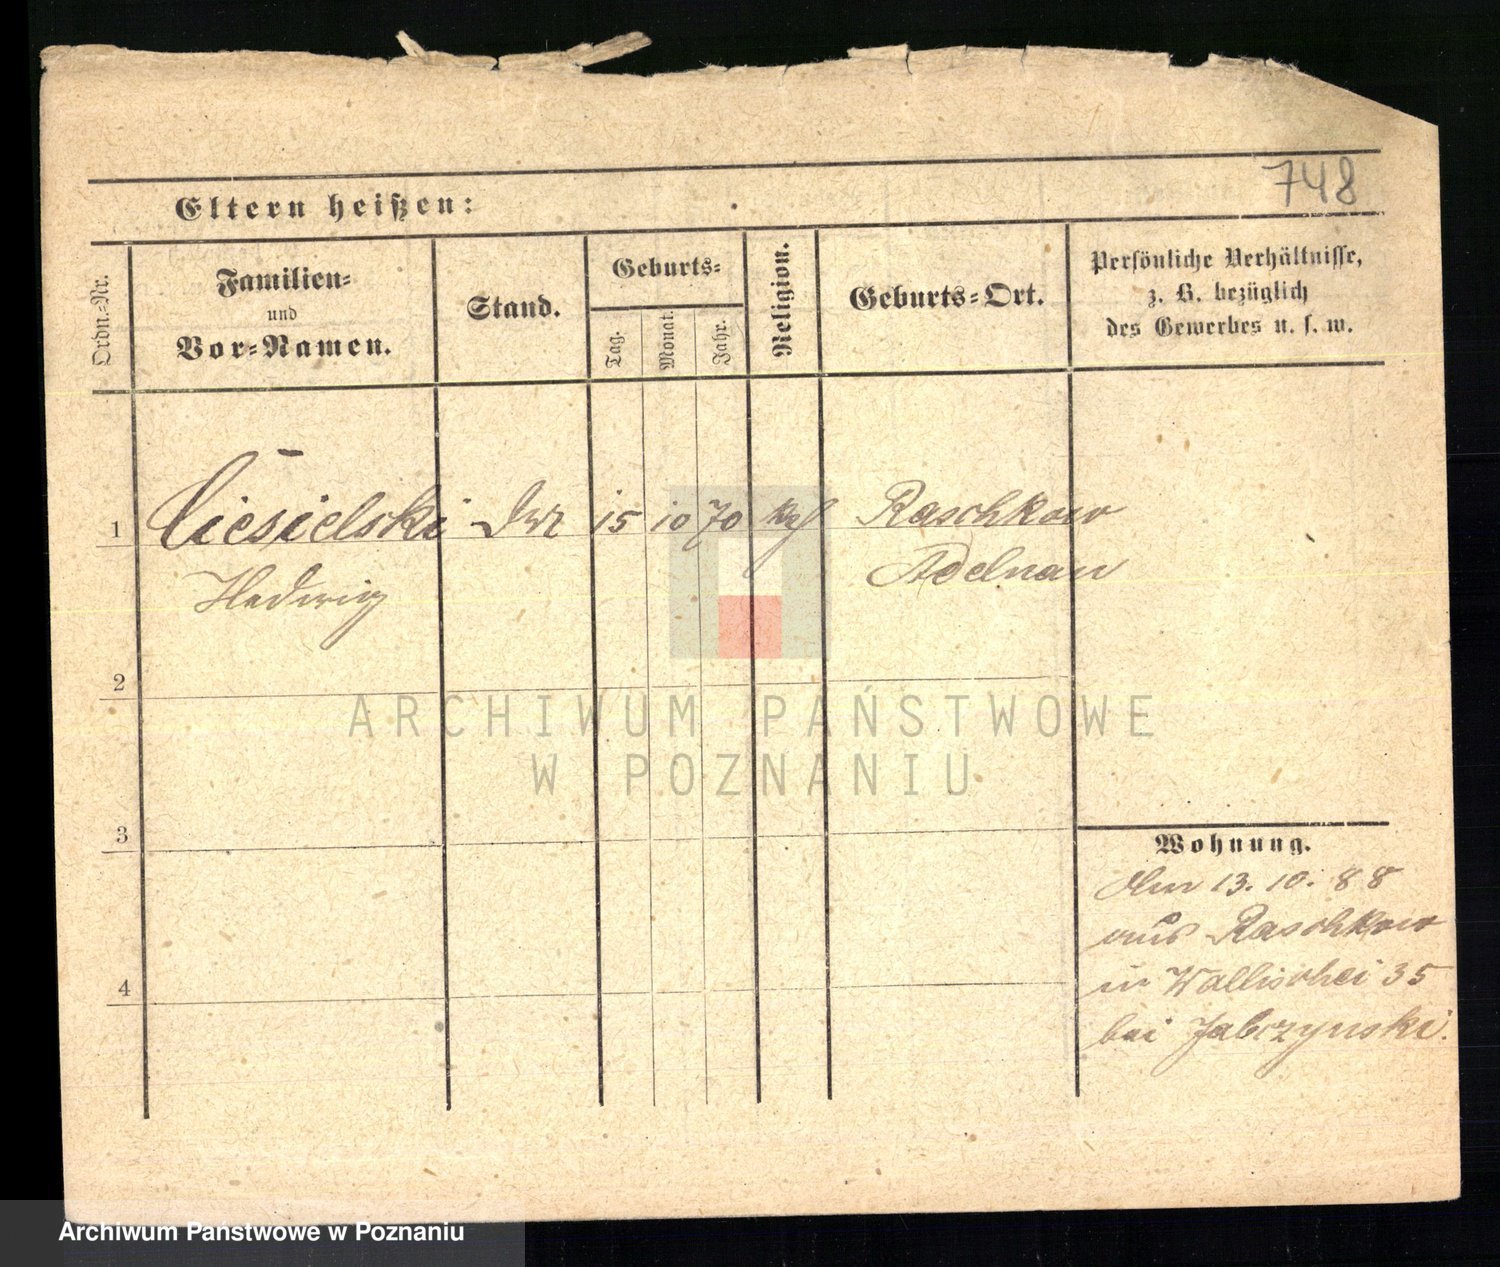 748
Eltern heißen:
Ordn.-Nr.
Familien-
und
Vor-Namen.
Stand.
Geburts-
Tag.
Monat.
Jahr.
Religion.
Geburts-Ort.
Persönliche Verhältnisse,
z. B. bezüglich
des Gewerbes u. s. w.
1 Ciesielski 15 10 70 Raschkow
Hedwig Adelnau
2
3
4
Wohnung.
13. 10. 88
aus Raschkow
in Wallischei 35
bei Jabczynski.
ARCHIWUM PAŃSTWOWE
W POZNANIU
Archiwum Państwowe w Poznaniu